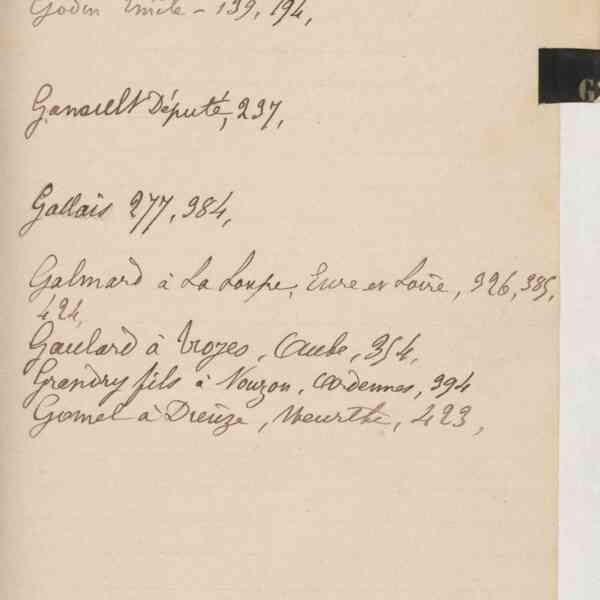 Godin Emile - 139, 194,
Ganault Député, 237,
Gallais 277, 384,
Galmard à La Loupe, Eure et Loire, 326, 385,
424,
Gaulard à Troyes, Aube, 354,
Grandry fils à Nouzon, Ardennes, 394
Gomel à Dieuze, Meurthe, 423,
G